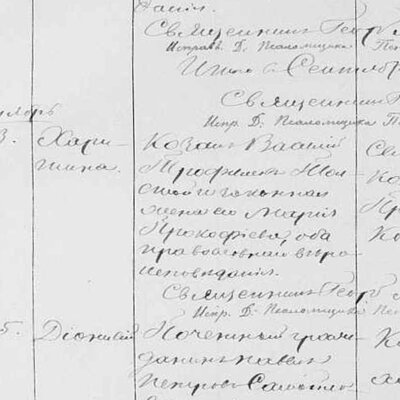 данія.
Священникъ Георг
Исправ. Д. Псаломщика
Итого въ Сентябр
Священникъ
Испр. Д. Псаломщика
3. Хари-
тина.
Козакъ Василій
Трофимовъ Тол-
стой и законная
жена его Марія
Прокофіева, оба
православнаго вѣро-
исповѣданія.
Священникъ Георг
Испр. Д. Псаломщика
5. Діонисій
Почетный граж-
данинъ Павелъ
Петровъ